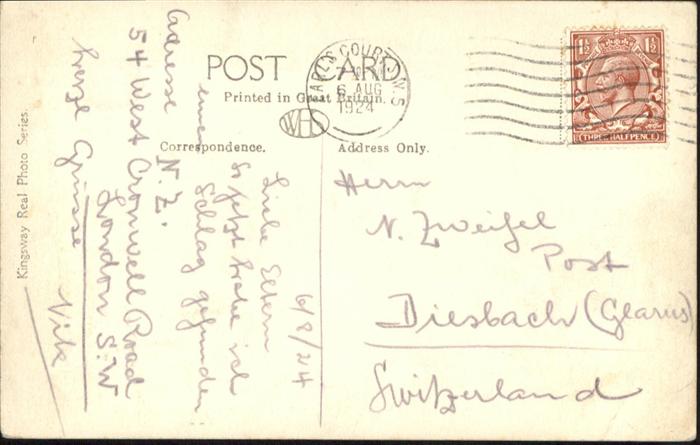 POST CARD
Printed in Great Britain.
WHS
Correspondence.
Address Only.
Kingsway Real Photo Series.
EARLS COURT S.W.5
6 AUG
1924
1½ 1½
THREE HALFPENCE
6/8/24
Liebe Eltern
So jetzt habe ich
Schlag gefunden
N. Z.
adresse
54 West Cromwell Road
London S.W
herzl Grüsse
Herrn
N. Zweifel
Post
Diesbach (Glarus)
Switzerland